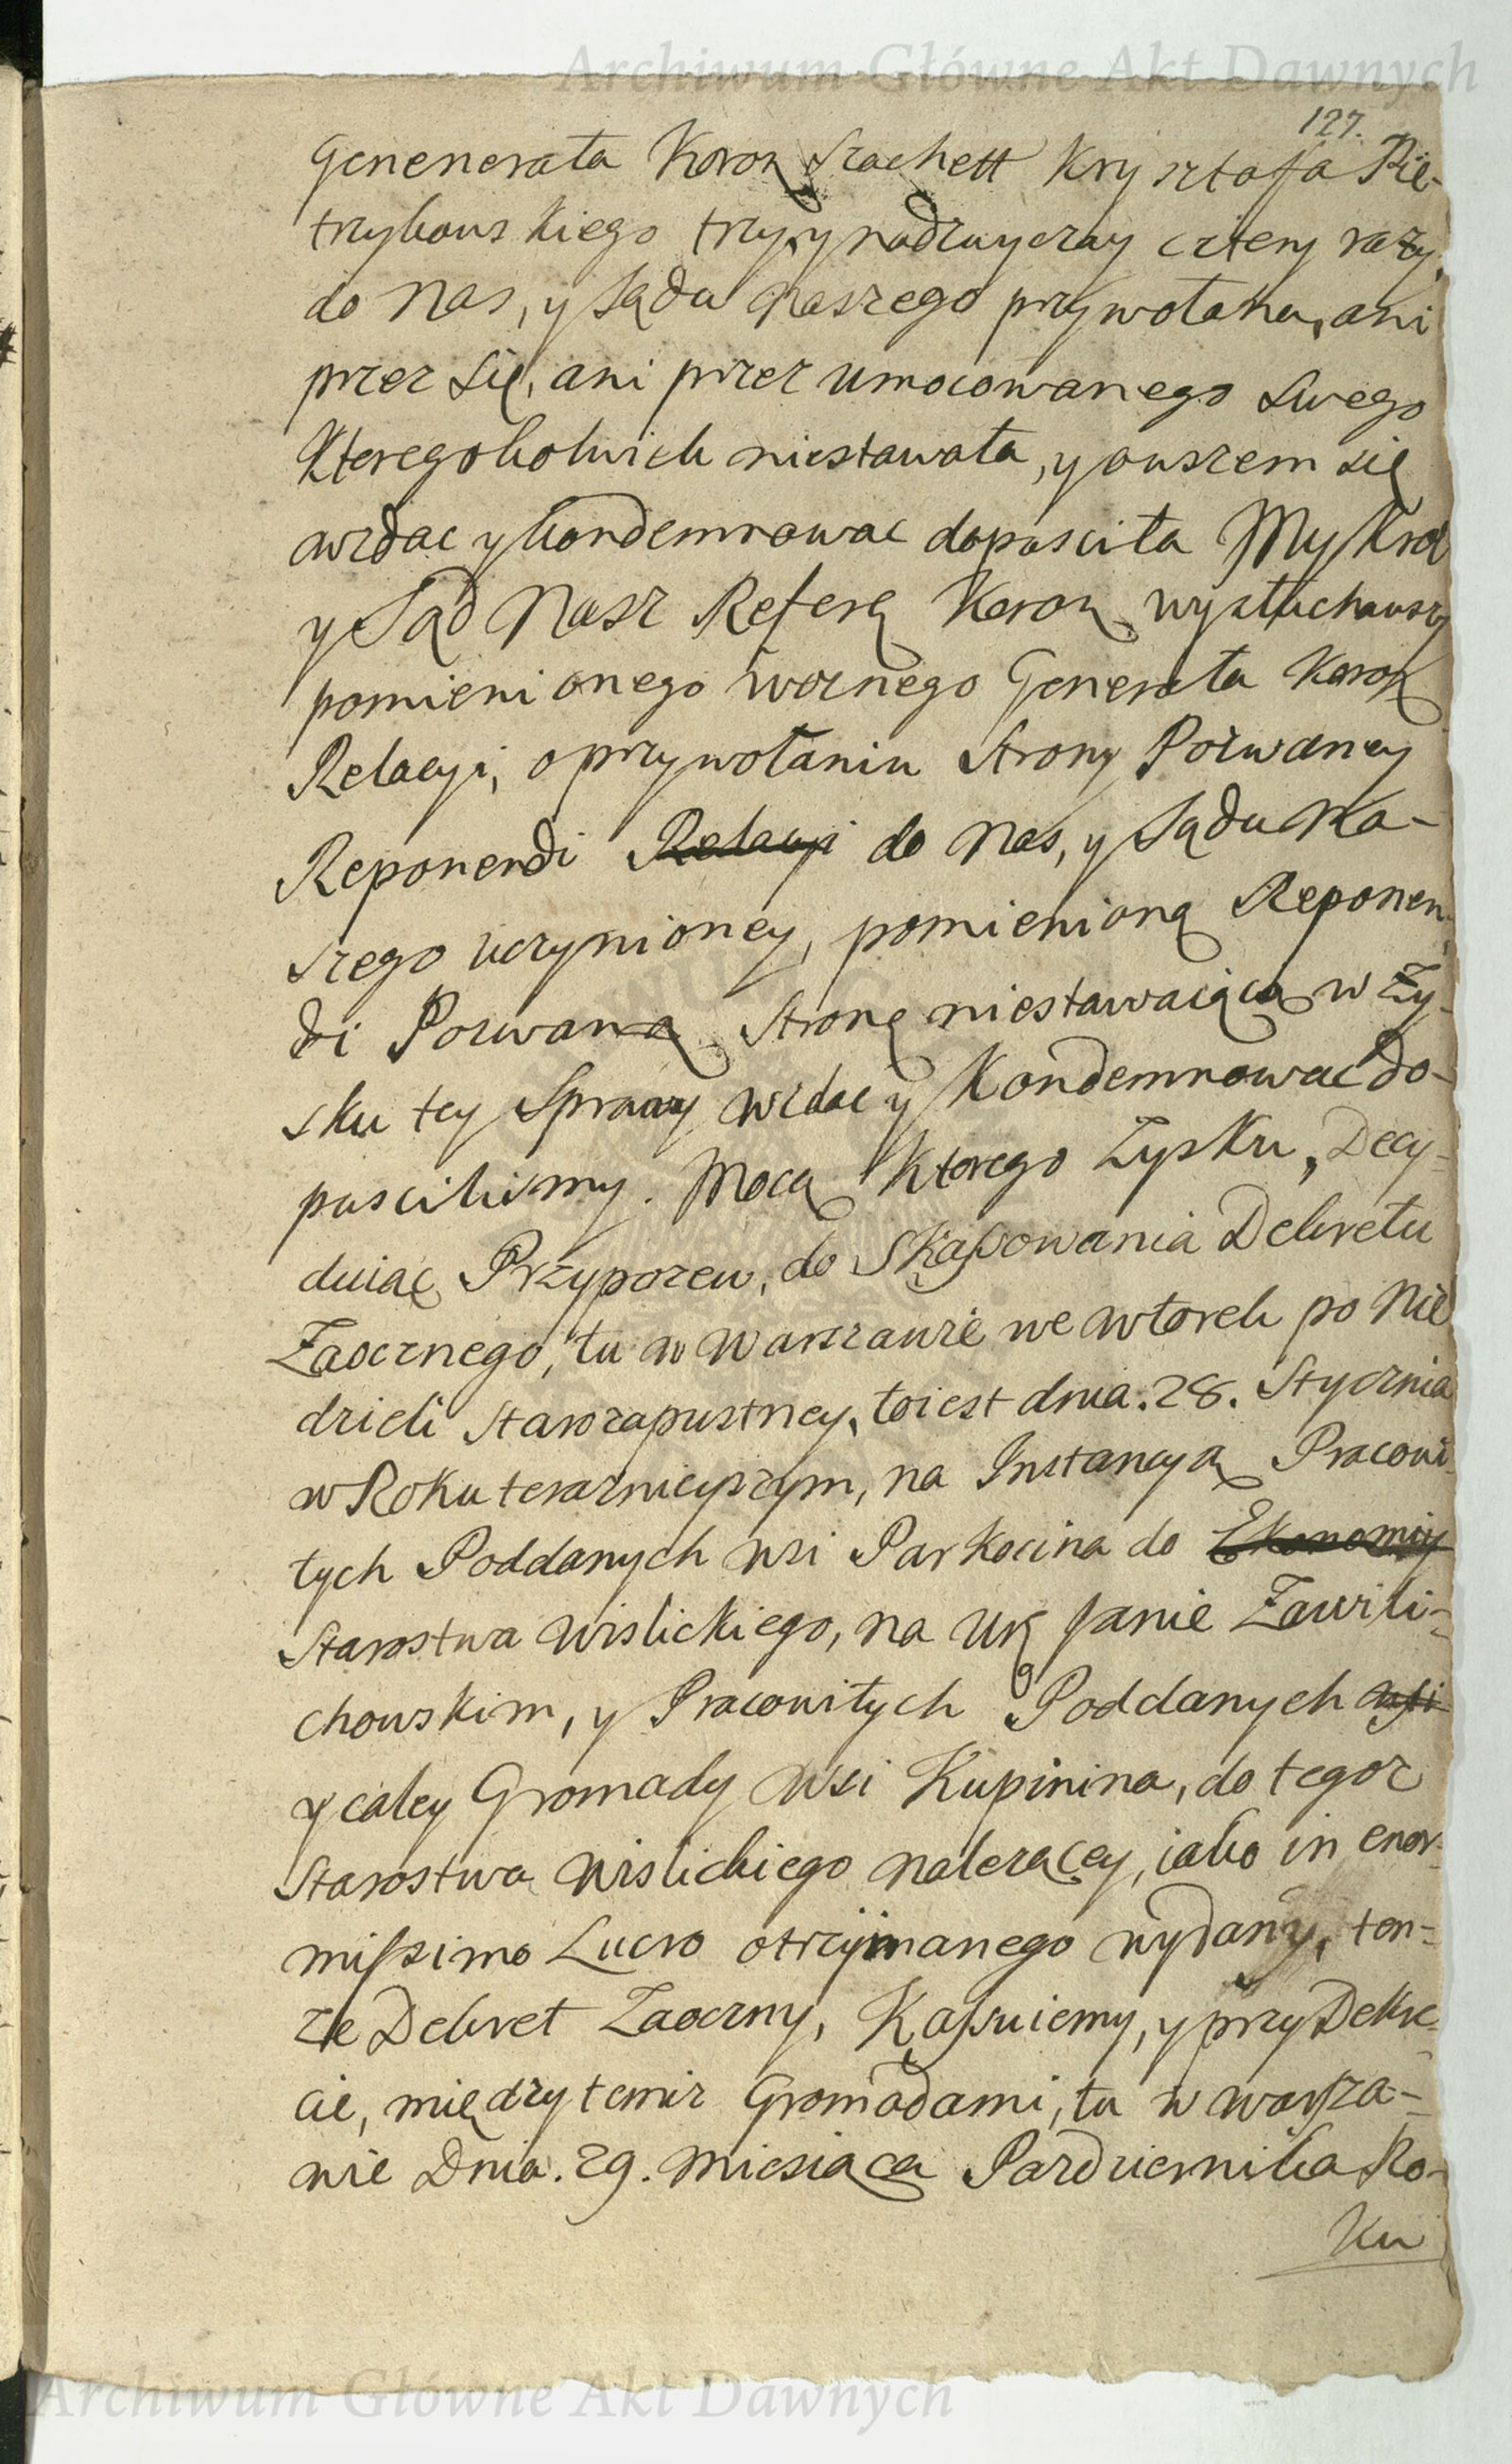 Archiwum Główne Akt Dawnych
127.
Genenerała Koron Szachett Krysztoffa Pie-
trzykowskiego trzy, y nadzwyczay cztery razy,
do Nas, y Sądu Naszego przywołana, ani
przez się, ani przez umocowanego swego
Ktoregokolwiek niestawała, y owszem się
wzdac y kondemnowac dopusciła My Krol
y Sąd Nasz Referą Koron wysłuchawszy
pomienionego woznego Generała Koron
Relacyi, o przywołaniu Strony Pozwaney
Reponendi Relacyi do Nas, y Sądu Na-
szego uczynioney, pomienioną Reponen-
di Pozwaną Stronę niestawaiącą w Zy-
sku tey Sprawy wzdac y Kondemnowac do-
puscilismy. Mocą Ktorego Zysku, Decy-
duiąc Przypozew, do Skassowania Dekretu
Zaocznego, tu w Warszawie we wtorek po Nie
dzieli Starozapustney, toiest dnia. 28. Stycznia
w Roku teraznieyszym, na Instancyą Pracowi-
tych Poddanych wsi Parkocina do Ekonomiy
Starostwa Wislickiego, na Ur Janie Zawili-
chowskim, y Pracowitych Poddanych wsi
y całey Gromady wsi Kupinina, do tegoz
Starostwa Wislickiego nalezącey, iako in enor-
missimo Lucro otrzymanego wydany, ten-
ze Dekret Zaoczny, Kassuiemy, y przy Dekre-
cie, między temiz Gromadami, tu w Warsza-
wie Dnia. 29. Miesiąca Pazdziernika Ro-
ku
Archiwum Główne Akt Dawnych